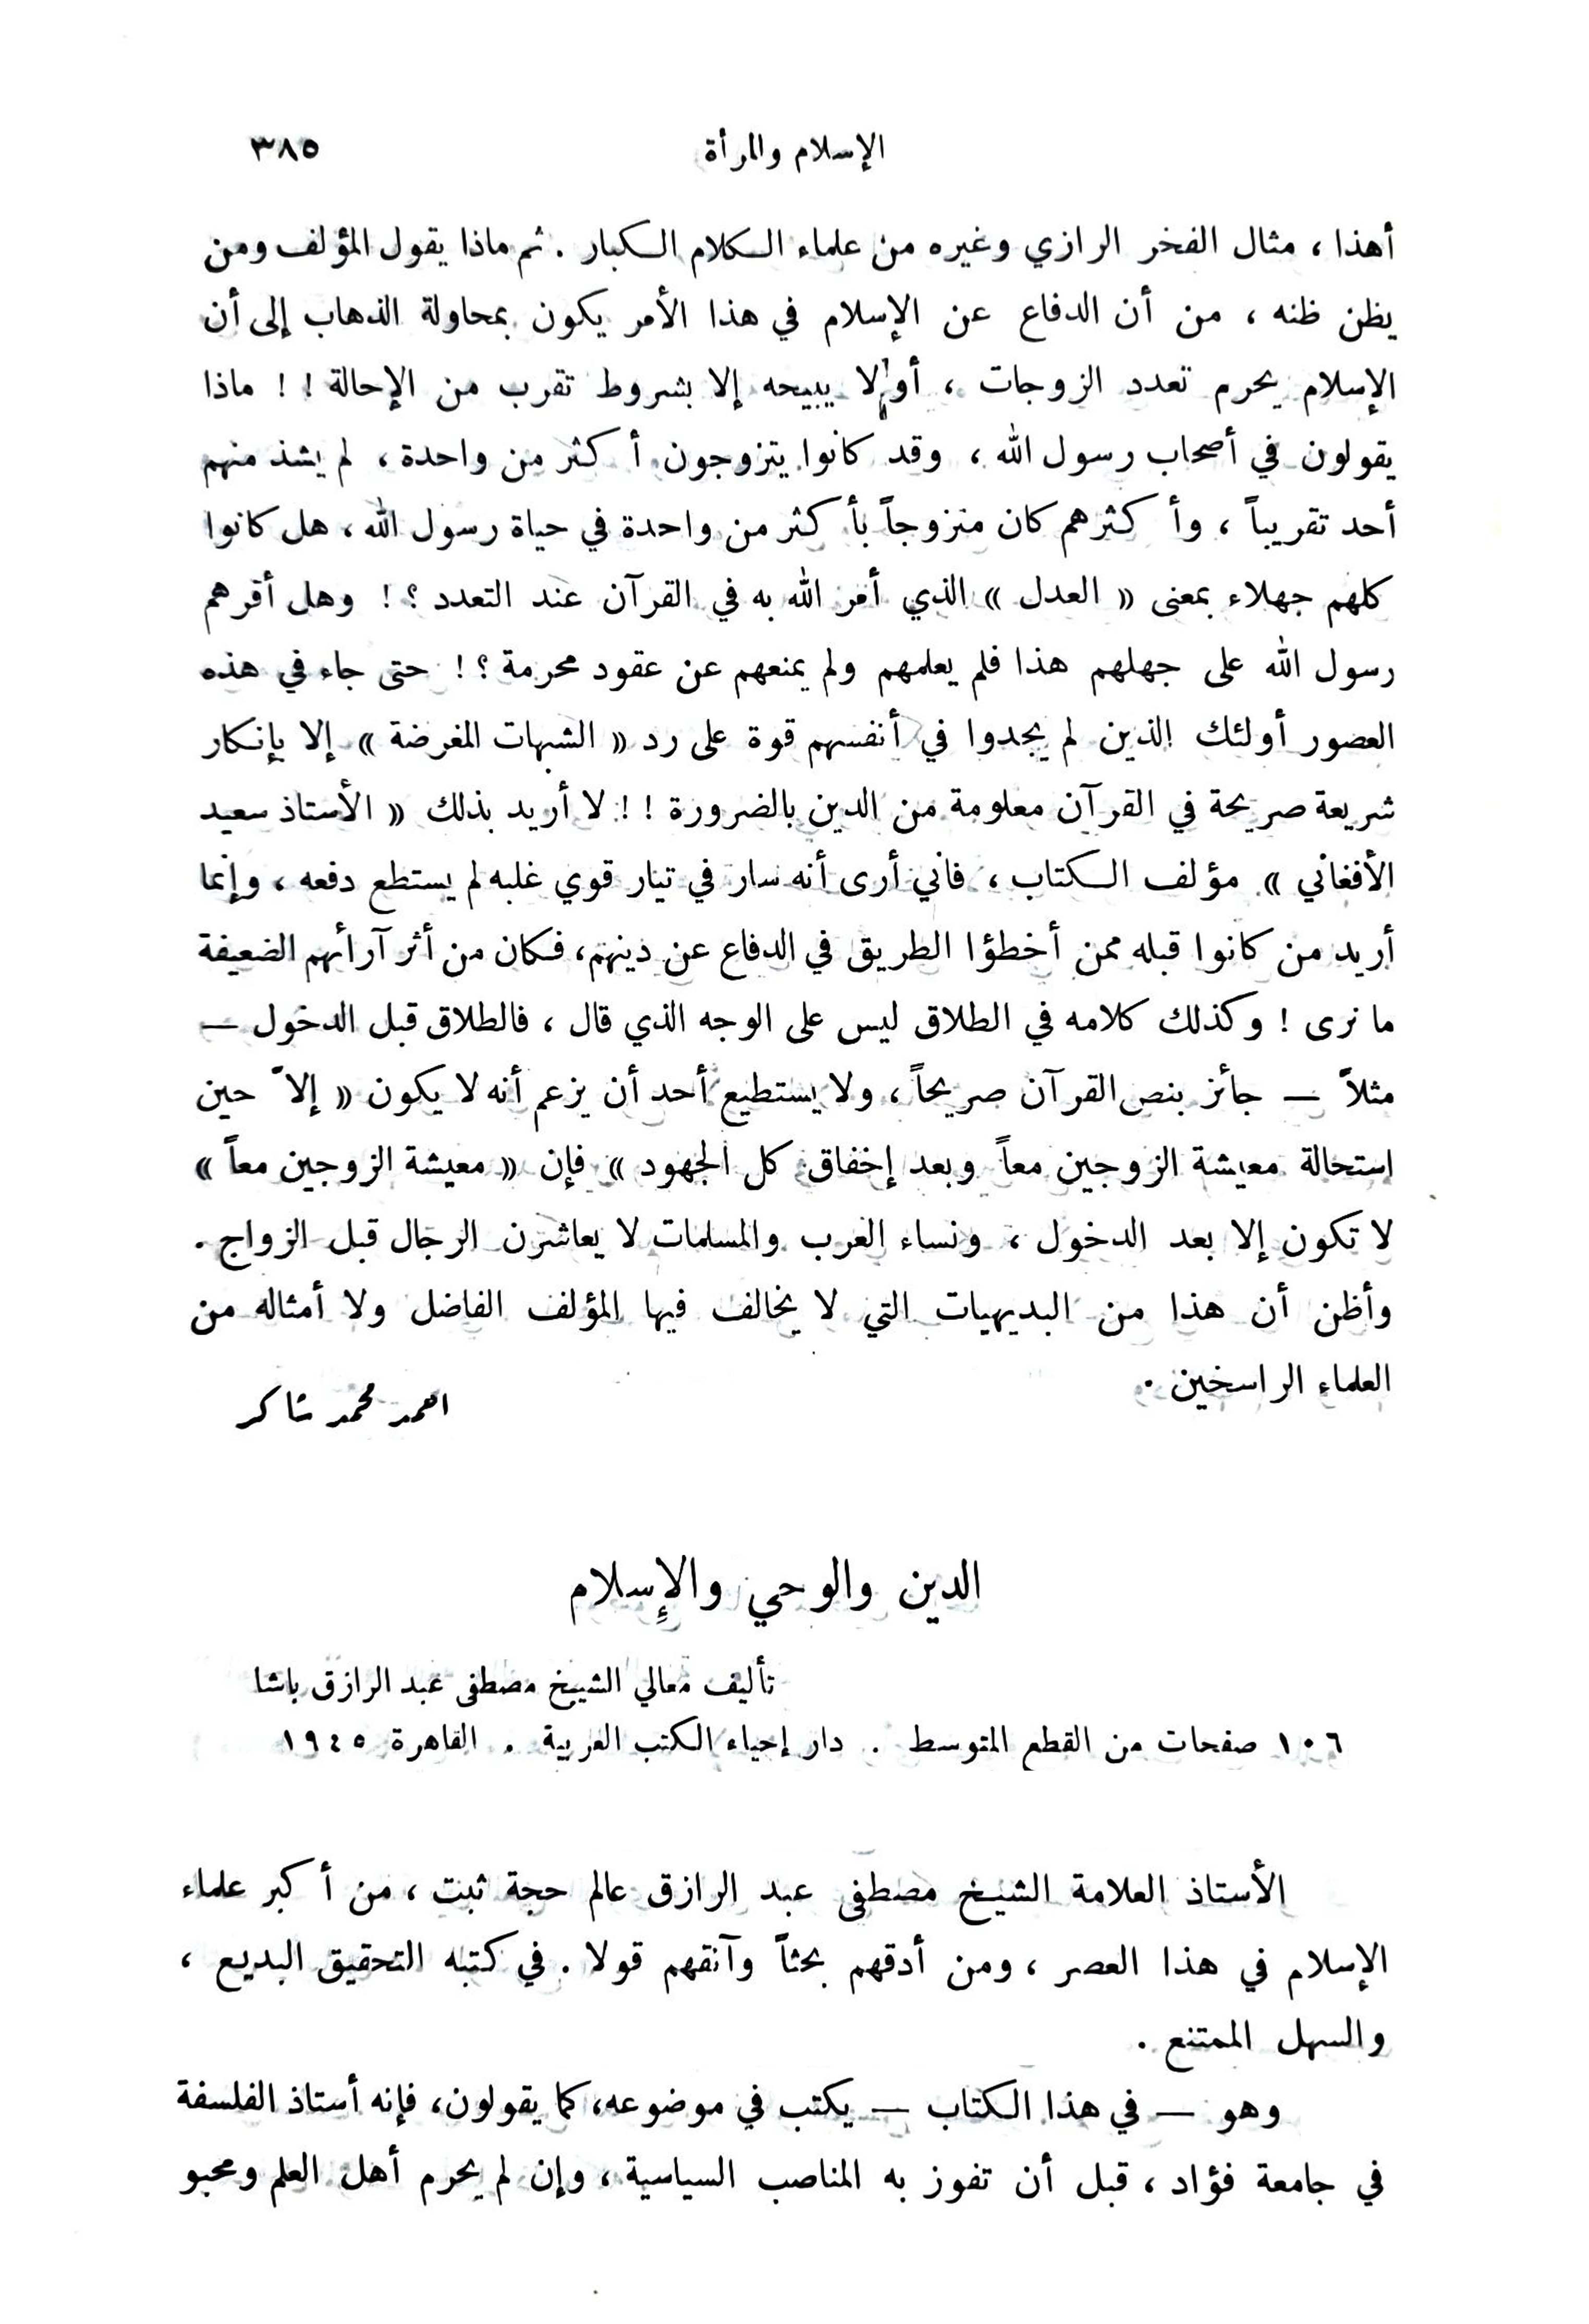 الإسلام والمرأة ٣٨٥
أهذا ، مثال الفخر الرازي وغيره من علماء الكلام الكبار . ثم ماذا يقول المؤلف ومن
يظن ظنه ، من أن الدفاع عن الإسلام في هذا الأمر يكون بمحاولة الذهاب إلى أن
الإسلام يحرم تعدد الزوجات ، أو لا يبيحه إلا بشروط تقرب من الإحالة ! ! ماذا
يقولون في أصحاب رسول الله ، وقد كانوا يتزوجون أكثر من واحدة ، لم يشذ منهم
أحد تقريباً ، وأكثرهم كان متزوجاً بأكثر من واحدة في حياة رسول الله ، هل كانوا
كلهم جهلاء بمعنى « العدل » الذي أمر الله به في القرآن عند التعدد ؟ ! وهل أقرهم
رسول الله على جهلهم هذا فلم يعلمهم ولم يمنعهم عن عقود محرمة ؟ ! حتى جاء في هذه
العصور أولئك الذين لم يجدوا في أنفسهم قوة على رد « الشبهات المغرضة » إلا بإنكار
شريعة صريحة في القرآن معلومة من الدين بالضرورة ! ! لا أريد بذلك « الأستاذ سعيد
الأفغاني » مؤلف الكتاب ، فاني أرى أنه سار في تيار قوي غلبه لم يستطع دفعه ، وإنما
أريد من كانوا قبله ممن أخطؤا الطريق في الدفاع عن دينهم، فكان من أثر آرائهم الضعيفة
ما نرى ! وكذلك كلامه في الطلاق ليس على الوجه الذي قال ، فالطلاق قبل الدخول —
مثلاً — جائز بنص القرآن صريحاً ، ولا يستطيع أحد أن يزعم أنه لا يكون « إلاّ حين
استحالة معيشة الزوجين معاً وبعد إخفاق كل الجهود » فإن « معيشة الزوجين معاً »
لا تكون إلا بعد الدخول ، ونساء العرب والمسلمات لا يعاشرن الرجال قبل الزواج .
وأظن أن هذا من البديهيات التي لا يخالف فيها المؤلف الفاضل ولا أمثاله من
العلماء الراسخين .
احمد محمد شاكر
الدين والوحي والإسلام
تأليف معالي الشيخ مصطفى عبد الرازق باشا
١٠٦ صفحات من القطع المتوسط . دار إحياء الكتب العربية . القاهرة ١٩٤٥
الأستاذ العلامة الشيخ مصطفى عبد الرازق عالم حجة ثبت ، من أكبر علماء
الإسلام في هذا العصر ، ومن أدقهم بحثاً وآنقهم قولا . في كتبه التحقيق البديع ،
والسهل الممتنع .
وهو — في هذا الكتاب — يكتب في موضوعه، كما يقولون، فإنه أستاذ الفلسفة
في جامعة فؤاد ، قبل أن تفوز به المناصب السياسية ، وإن لم يحرم أهل العلم ومحبو